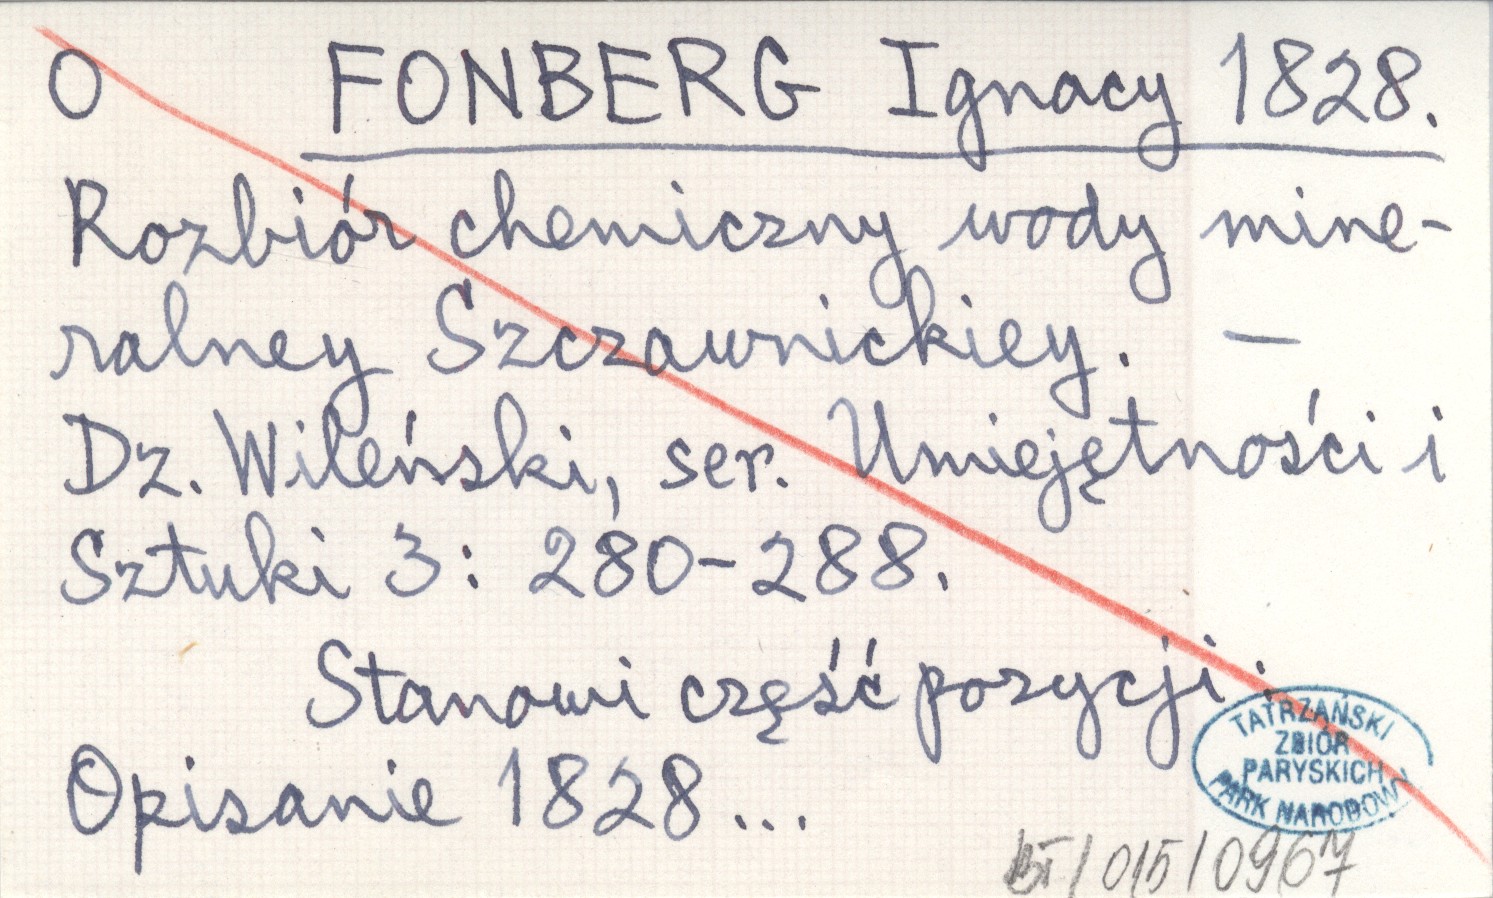 O FONBERG Ignacy 1828.
Rozbiór chemiczny wody mine-
ralney Szczawnickiey. —
Dz. Wileński, ser. Umiejętności i
Sztuki 3: 280-288.
Stanowi część pozycji:
Opisanie 1828...
TATRZAŃSKI
ZBIÓR
PARYSKICH
PARK NARODOWY
/015/0967